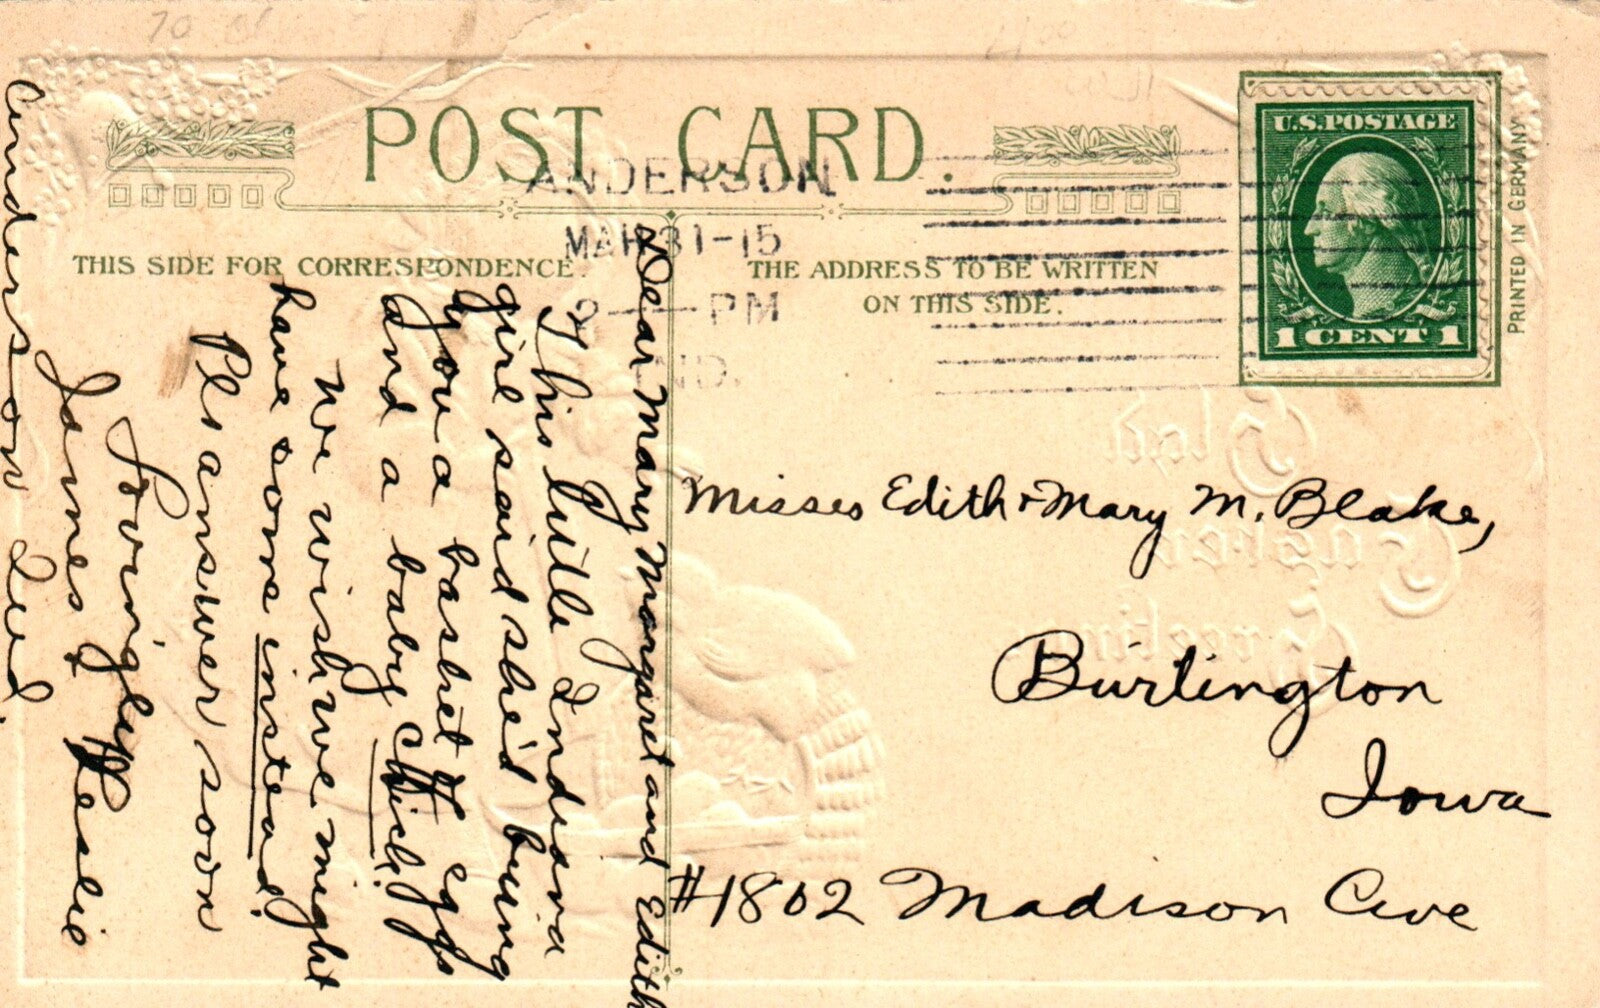 POST CARD.
ANDERSON
MAR 31-15
2 — PM
IND.
U.S. POSTAGE
1 CENT 1
PRINTED IN GERMANY
THIS SIDE FOR CORRESPONDENCE.
THE ADDRESS TO BE WRITTEN
ON THIS SIDE.
Dear Mary Margaret and Edith
This little Indiana
girl said she'd bring
you a basket of eggs
and a baby Chick!
We wish we might
have come instead!
Pls answer soon
Lovingly
James Leslie
Anderson Ind.
Misses Edith & Mary M. Blake,
Burlington
Iowa
#1802 Madison Ave
Glad
Easter
Greeting